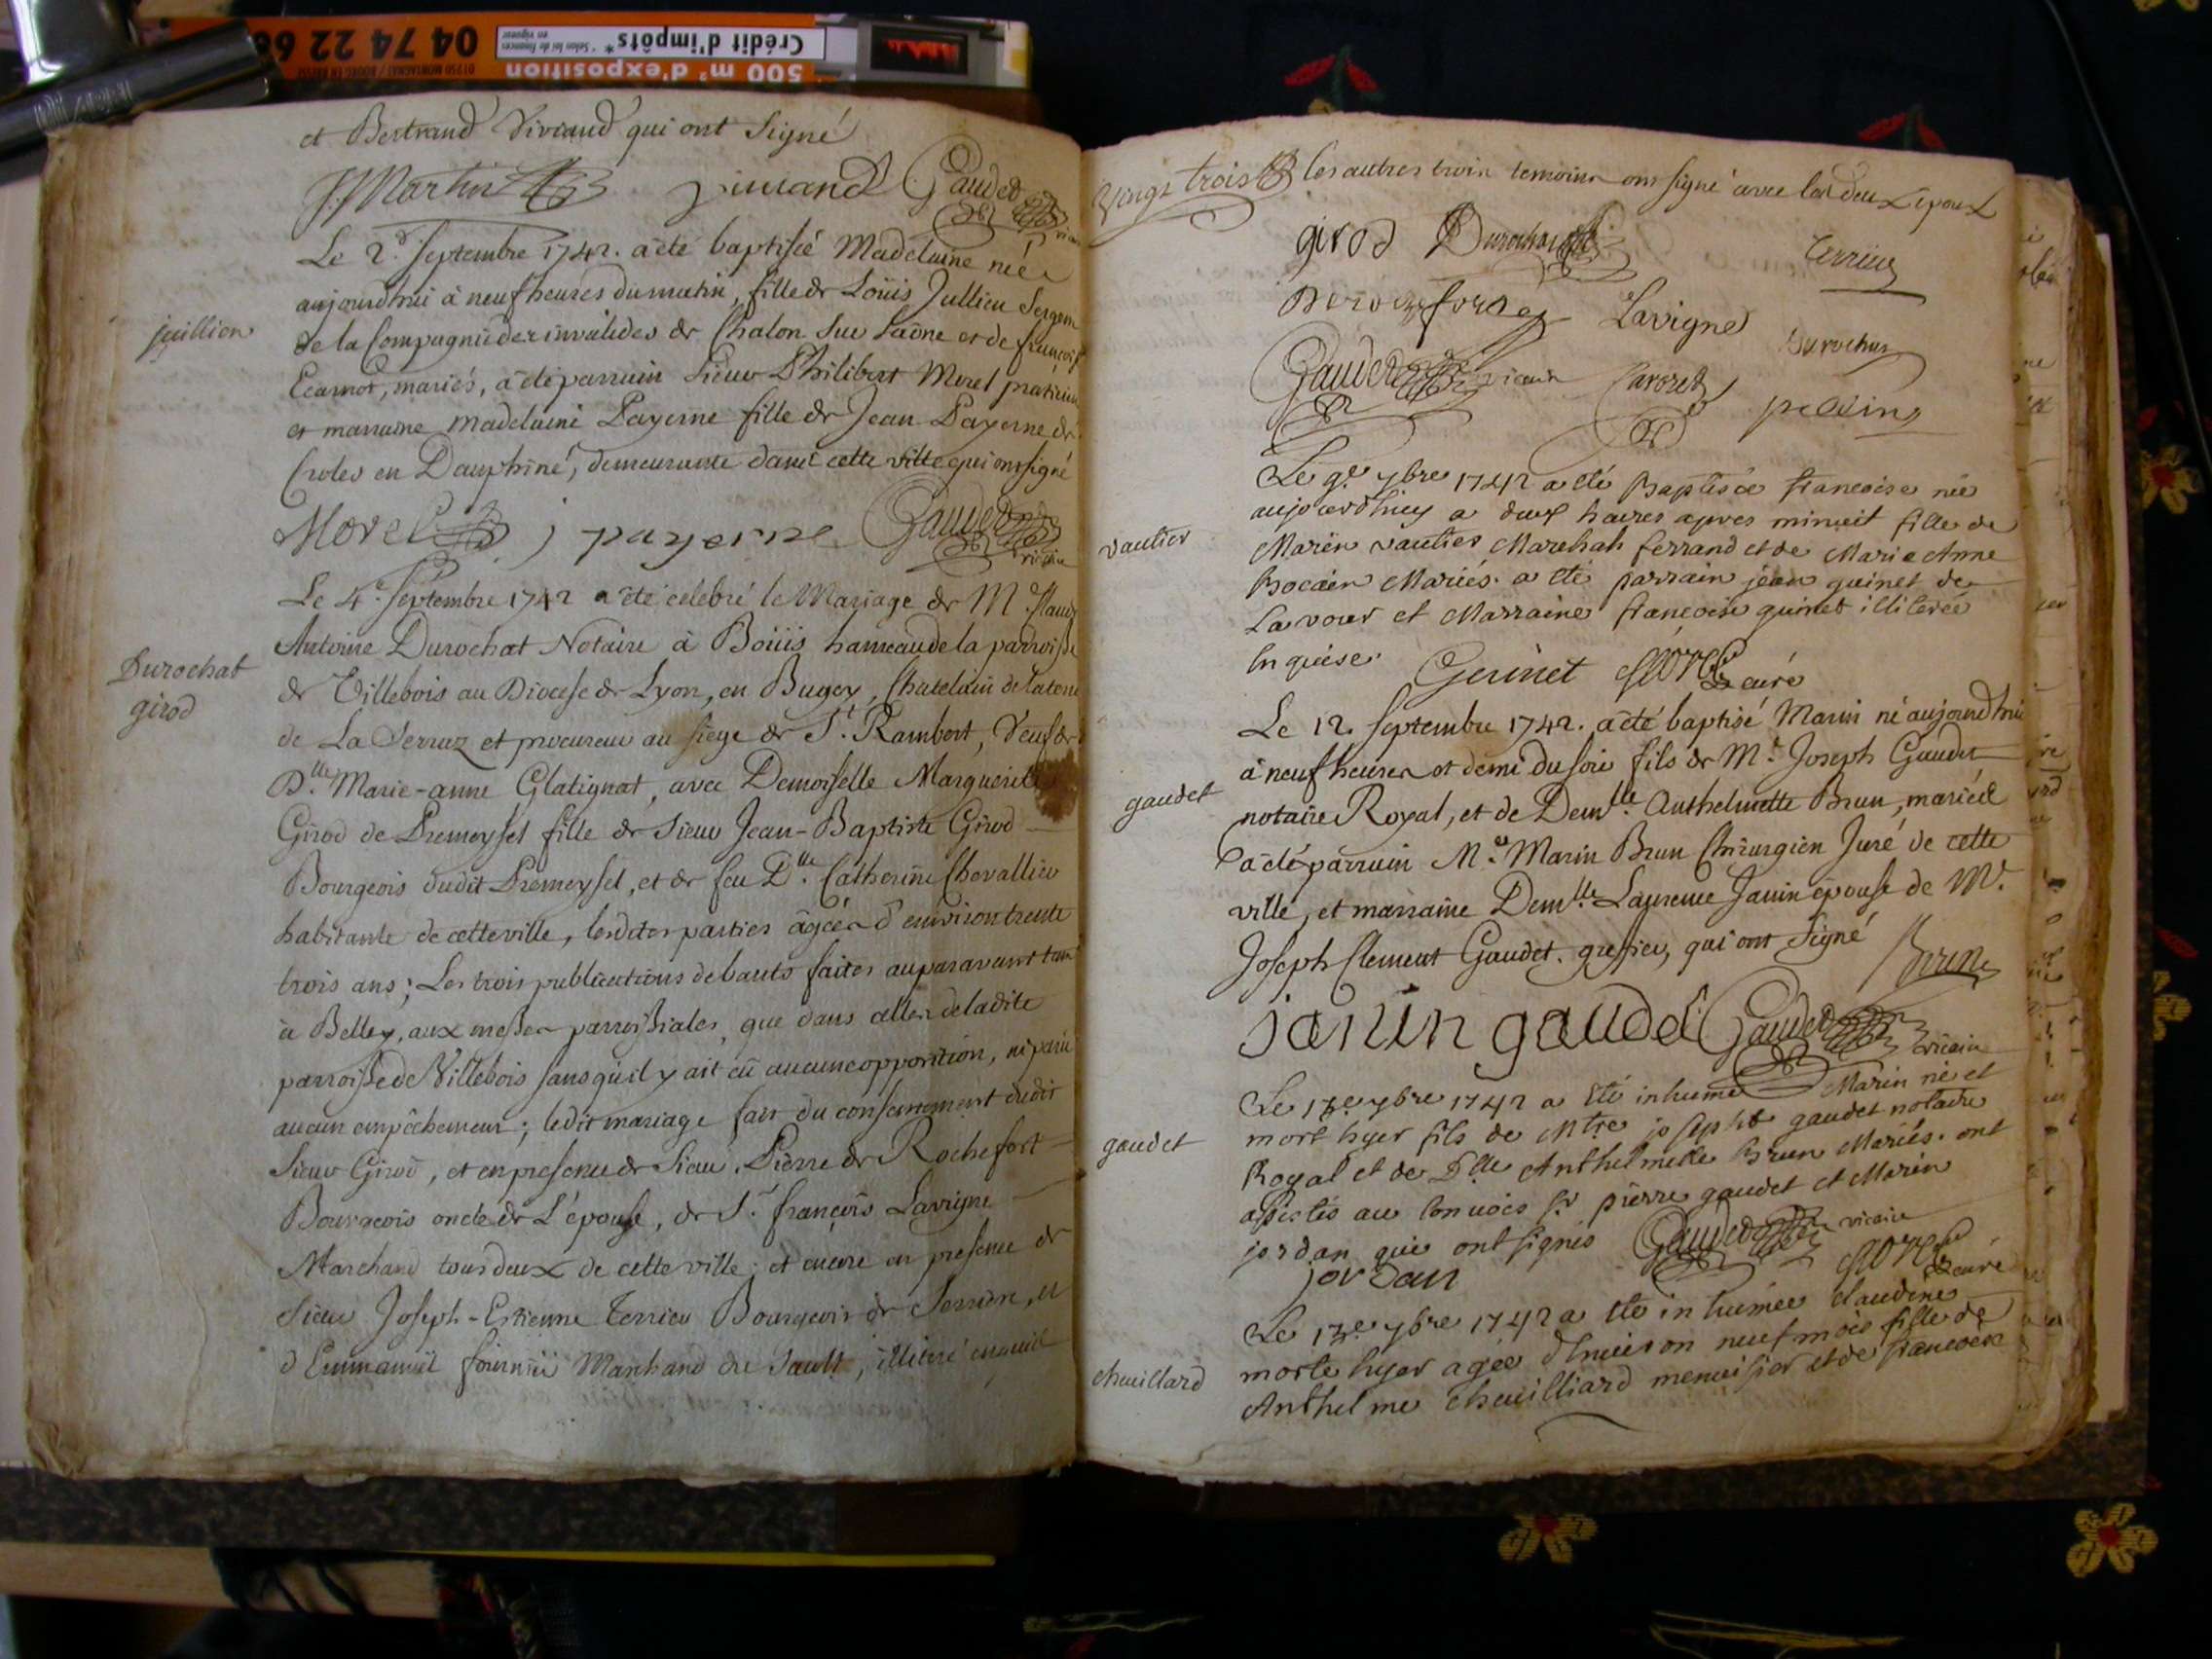 04 74 22 6
01350 MORTAGNAT / BOURG EN BRESSE
Crédit d'impôts*
* Selon loi de finances en vigueur
500 m² d'exposition
et Bertrand Viviand qui ont Signé
J. Martin viviand Gaudet
Le 2.e Septembre 1742. a été baptisée Madelaine née
aujourdhui à neuf heures du matin, fille de Loüis Jullien Sergent
juillien
de la Compagnie des invalides de Chalon Sur Saône et de françoise
Ecarnot, mariés, a été parrain Sieur Philibert Morel praticien
et marraine Madelaine Payerne fille de Jean Payerne de
Croles en Dauphiné, demeurante dans cette ville qui ont signé
Morel j payerne Gaudet vicaire
Le 4.e Septembre 1742 a été celebré le Mariage de M.e Claude
Antoine Durochat Notaire à Boüis hameau de la parroisse
Durochat
girod
de Villebois au Diocese de Lyon, en Bugey, Chatelain de la terre
de La Verruz et procureur au siege de S.t Rambert, Veuf de
D.lle Marie-anne Glatignat, avec Demoiselle Marguerite
Girod de Premeysel fille de Sieur Jean-Baptiste Girod
Bourgeois dudit Premeysel, et de feu D.lle Catherine Chevallier
habitante de cette ville, lesdites parties âgées d'environ trente
trois ans; Les trois publications de bants faites auparavant tant
à Belley, aux messes parroissiales, que dans celles de ladite
parroisse de Villebois sans qu'il y ait eû aucune opposition, ni paru
aucun empêchement; ledit mariage fait du consentement dudit
Sieur Girod, et en presence de Sieur Pierre de Rochefort
Bourgeois oncle de L'épouse, de S.r françois Lavigne
Marchand tous deux de cette ville; et encore en presence de
Sieur Joseph-Estienne Terrier Bourgeois de Serrière, et
d'Emmanuël fournier Marchand de Sault, illiteré enquis
Vingt trois les autres trois temoins ont signé avec les deux époux
girod Durochat terrier
Derochefort Lavigne durochat
Gaudet vicaire Carozet pellin
Le 9.e 7bre 1742 a été Baptisée francoise née
aujourdhuy a deux heures apres minuit fille de
vautier
Marin vautier Marchal ferrand et de Marie Anne
Bocain Mariés. a été parrain jean guinet de
Lavour et Marraine francoise guinet illiterée
Enquise. Geuinet Morel curé
Le 12. Septembre 1742. a été baptisé Marin né aujourdhui
à neuf heures et demi du soir fils de M.e Joseph Gaudet
gaudet
notaire Royal, et de Dem.lle Anthelmette Brun, mariés
a été parrain M.e Marin Brun Chirurgien Juré de cette
ville, et marraine Dem.lle Laurence Janin épouse de M.e
Joseph Clement Gaudet. greffier, qui ont Signé
Brun
janin gaudet Gaudet vicaire
Le 13e 7bre 1742 a été inhumé Marin né et
mort hyer fils de Mtre joseph gaudet notaire
gaudet
Royal et de Dlle Anthelmette Brun Mariés. ont
assistés au convois Sr pierre gaudet et Marin
jordan qui ont signés Gaudet vicaire
jordan Morel curé
Le 13e 7bre 1742 a été inhumée claudine
morte hyer agée d'environ neuf mois fille de
cheuillard
Anthelme cheuilliard menuisier et de francoise